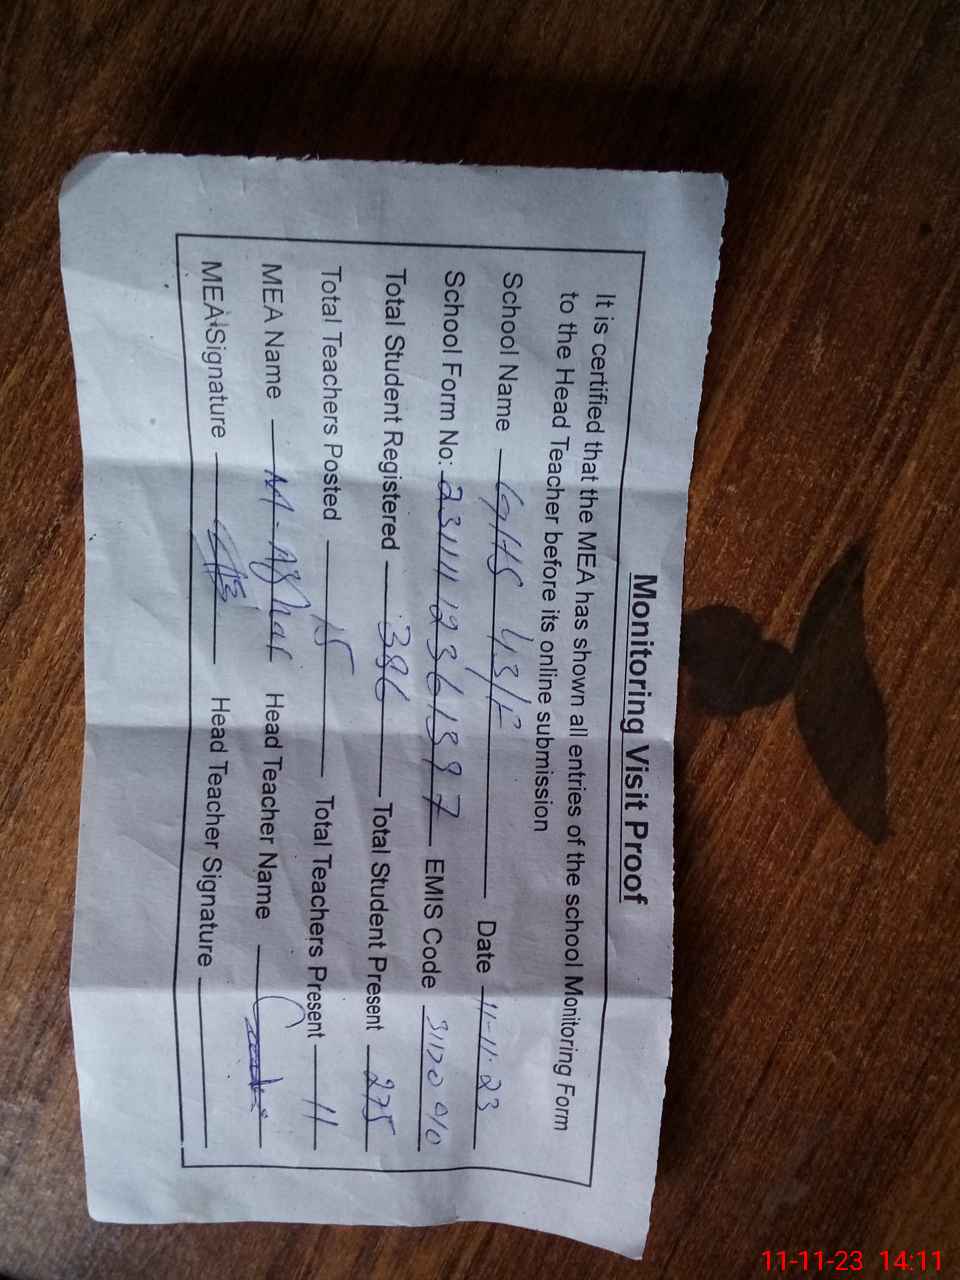 Monitoring Visit Proof
It is certified that the MEA has shown all entries of the school Monitoring Form
to the Head Teacher before its online submission
School Name GHS 43/F Date 11-11-23
School Form No: 2311112361597 EMIS Code 31120010
Total Student Registered 386 Total Student Present 275
Total Teachers Posted 15 Total Teachers Present 11
MEA Name M. Azhar Head Teacher Name
MEA Signature Head Teacher Signature
11-11-23 14:11